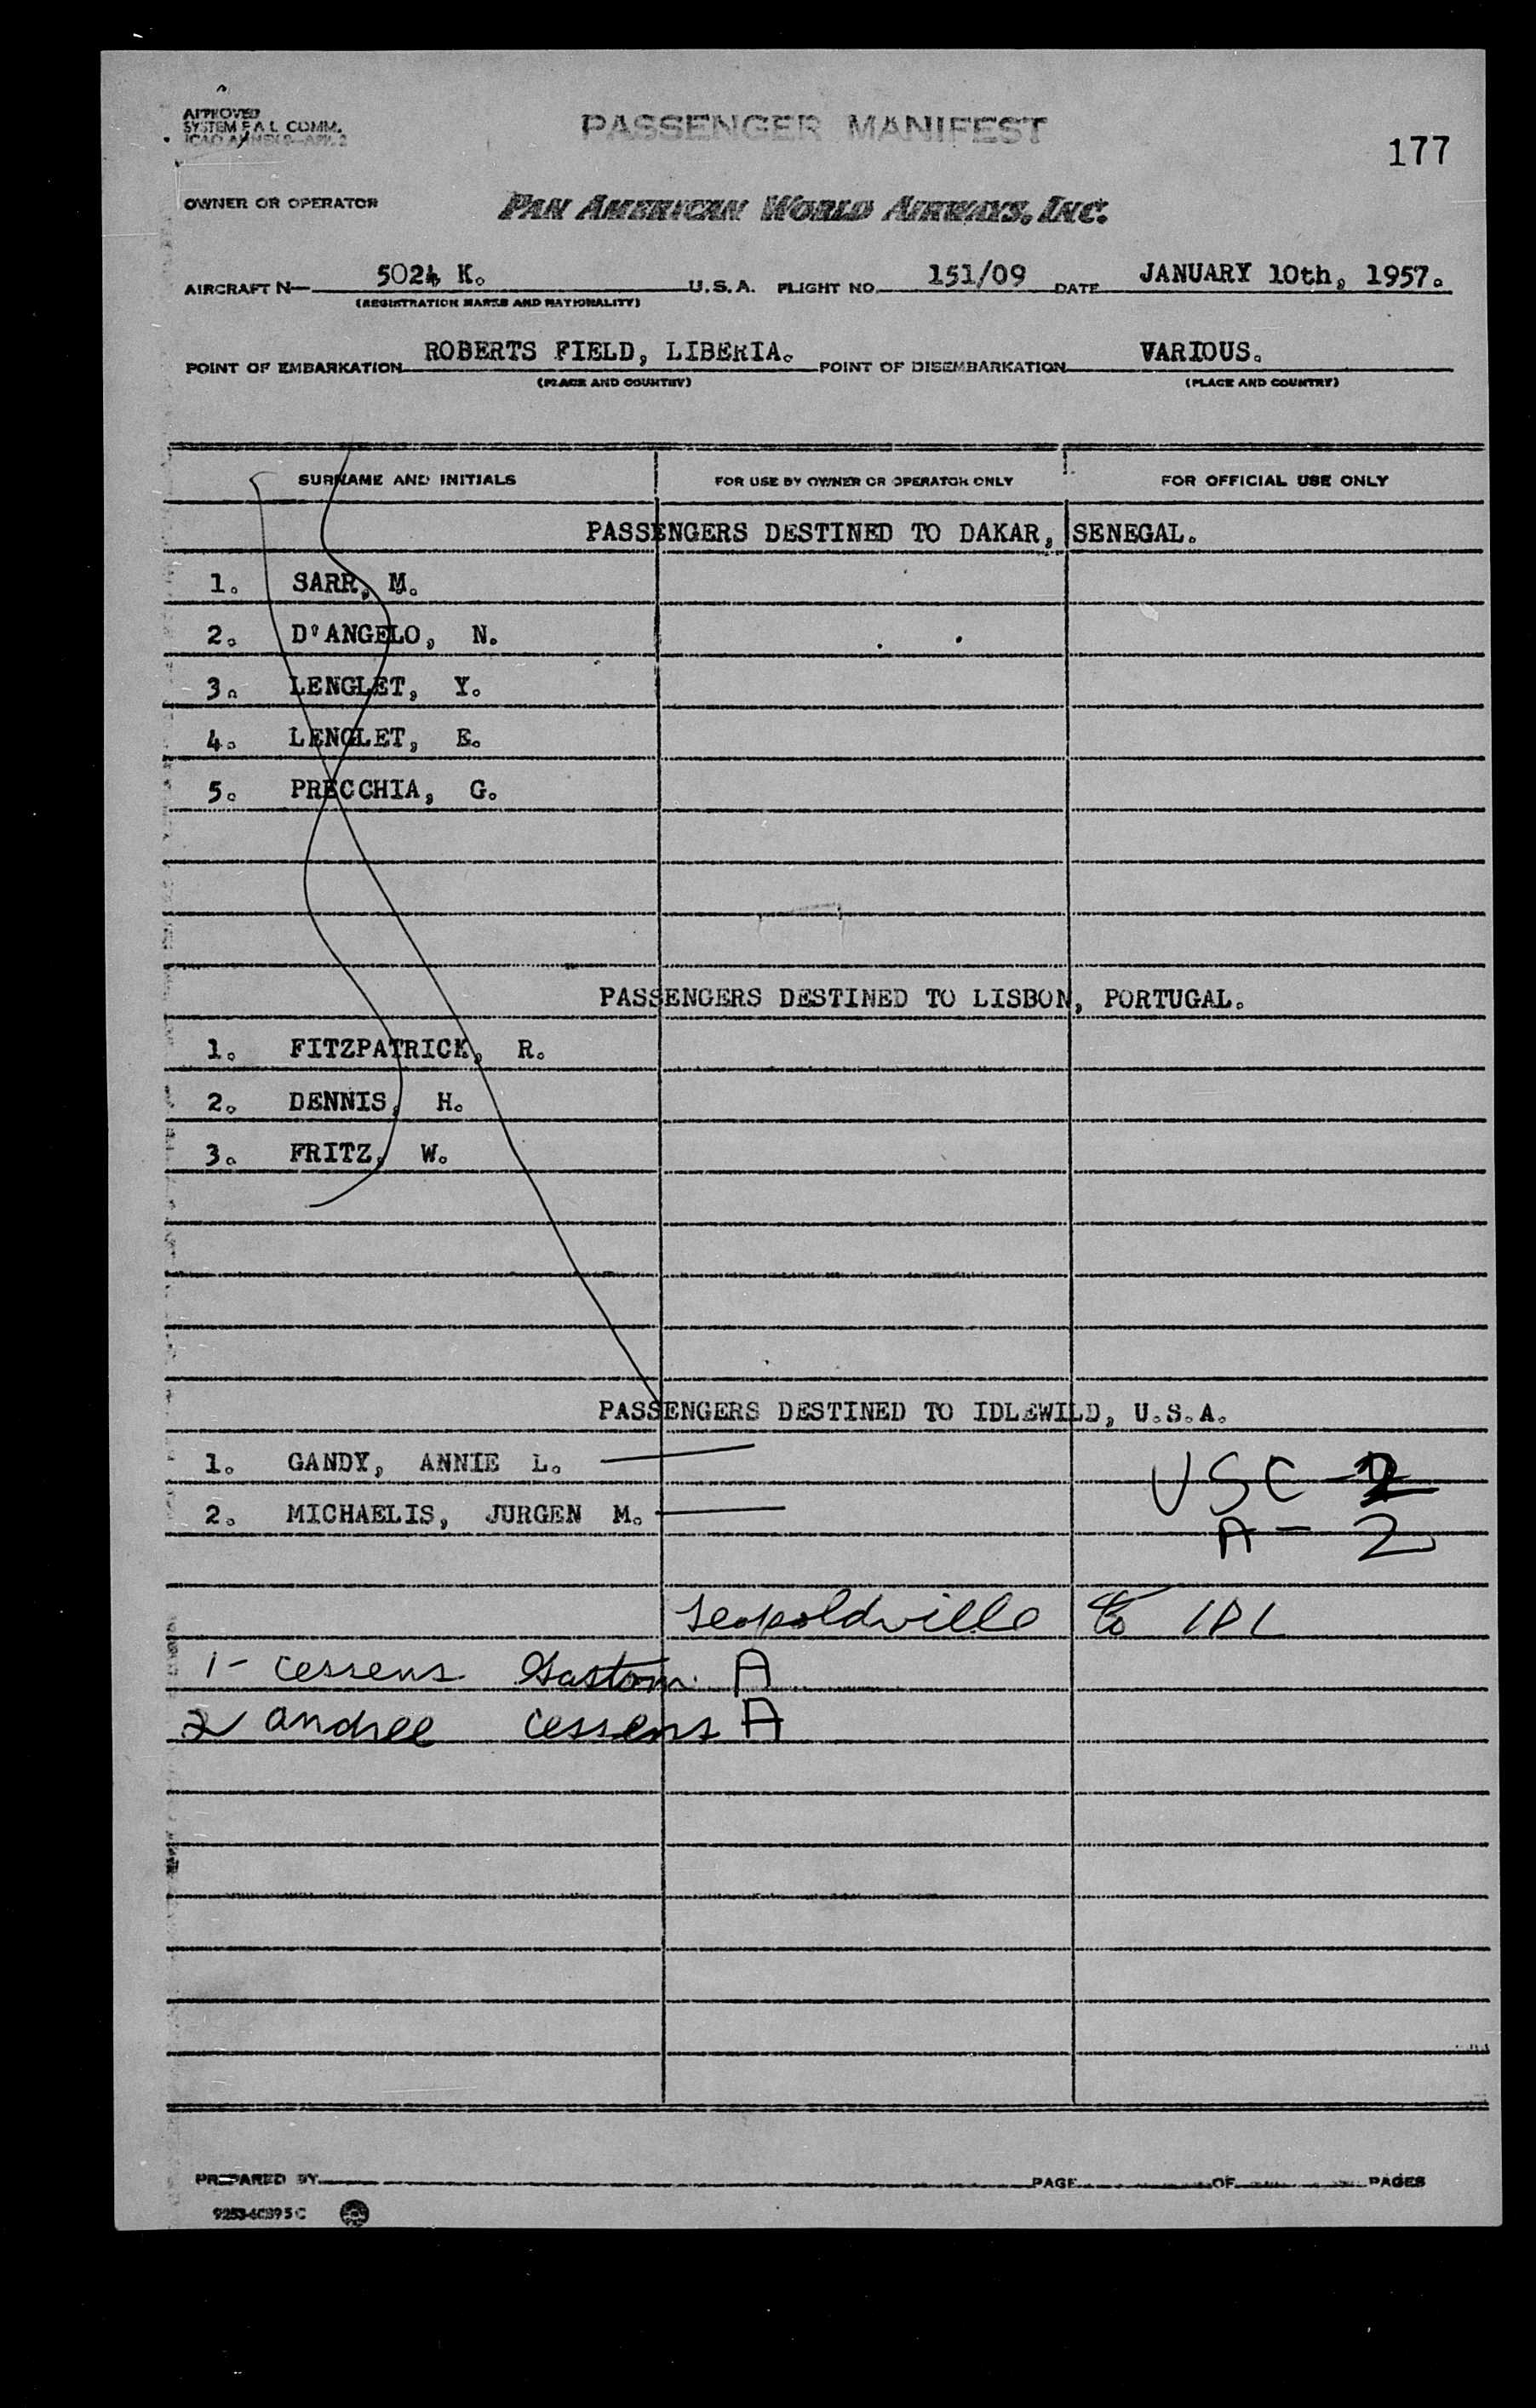 APPROVED
SYSTEM F.A.L. COMM.
ICAO ANNEX 9—APP. 2
PASSENGER MANIFEST
177
OWNER OR OPERATOR PAN AMERICAN WORLD AIRWAYS, INC.
AIRCRAFT N— 5024 K. U.S.A. FLIGHT NO. 151/09 DATE JANUARY 10th, 1957.
(REGISTRATION MARKS AND NATIONALITY)
POINT OF EMBARKATION ROBERTS FIELD, LIBERIA. POINT OF DISEMBARKATION VARIOUS.
(PLACE AND COUNTRY) (PLACE AND COUNTRY)
SURNAME AND INITIALS FOR USE BY OWNER OR OPERATOR ONLY FOR OFFICIAL USE ONLY
PASSENGERS DESTINED TO DAKAR, SENEGAL.
1. SARR, M.
2. D'ANGELO, N.
3. LENGLET, Y.
4. LENGLET, E.
5. PRECCHIA, G.
PASSENGERS DESTINED TO LISBON, PORTUGAL.
1. FITZPATRICK, R.
2. DENNIS, H.
3. FRITZ, W.
PASSENGERS DESTINED TO IDLEWILD, U.S.A.
1. GANDY, ANNIE L. —
USC - 2
2. MICHAELIS, JURGEN M. —
A - 2
Leopoldville to IDL
1- Cessens Gaston A
2 Andree Cessens A
PREPARED BY PAGE OF PAGES